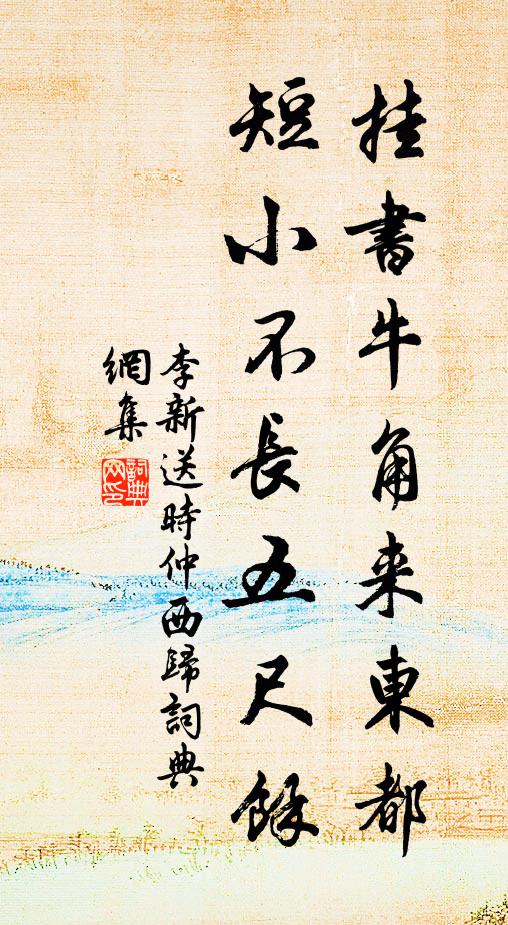 挂書牛角来東都
短小不長五尺餘
李新送時仲西歸詞典
網集
詞典網印